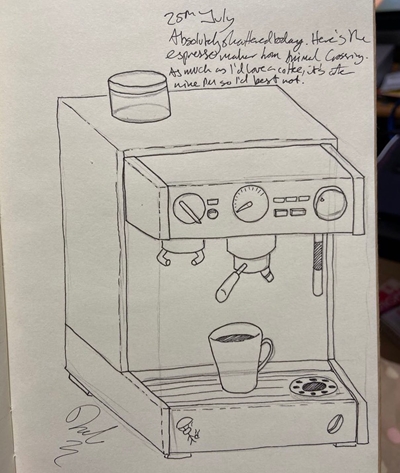 25th July
Absolutely shattered today. Here's the
espresso maker from Animal Crossing.
As much as I'd love a coffee, it's after
nine PM so I'd best not.